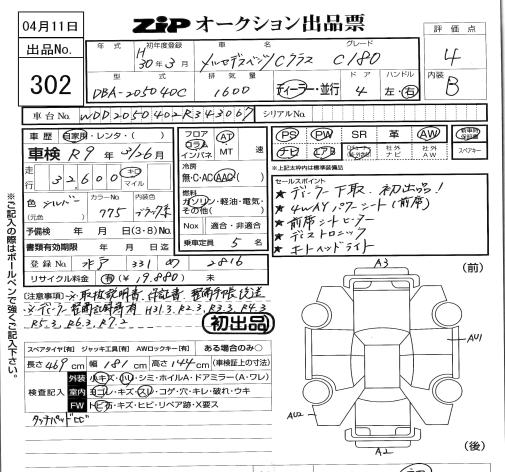 04月11日
ZiP オークション出品票
出品No.
302
年式 初年度登録 車名 グレード
H30年3月 メルセデスベンツCクラス C180
型式 排気量 ドア ハンドル
DBA-205040C 1600 ディーラー・並行 4 左・右
評価点
4
内装
B
車台No. WDD2050402R343067 シリアルNo.
車歴 自家用・レンタ・( )
車検 R9年 3/26月
走行 32,600 キロ マイル
色 シルバー カラーNo. 775 内装色 ブラック系
(元色)
予備検 年 月 日(3・8)No.
書類有効期限 年 月 日迄
登録No. 水戸 331 め 2816
リサイクル料金 有(¥19,880) 未
フロア コラム インパネ AT MT 速
冷房
無・C・AC・AAC
燃料
ガソリン・軽油・電気・その他( )
Nox 適合・非適合
乗車定員 5 名
PS PW SR 革 AW
ナビ エアB 社外ナビ 社外AW
新車時保証書
スペアキー
※上記太枠内は標準装備品
セールスポイント
★ディーラー下取、初出品!
★4WAYパワーシート(前席)
★前席シートヒーター
★ディストロニック
★オートヘッドライト
(注意事項)・※取扱説明書、保証書、整備手帳後送
・※ディーラー整備記録簿有 H31.3、R2.3、R3.3、R4.3
R5.3、R6.3、R7.2
初出品
スペアタイヤ[有] ジャッキ工具[有] AWロックキー[有] ある場合のみ○
長さ 469 cm 幅 181 cm 高さ 144 cm (車検証上の寸法)
検査記入
外装 小キズ・凹・シミ・ホイルA・ドアミラー(A・ワレ)
室内 ヨゴレ・キズ・スレ・コゲ・穴・キレ・破れ・ウキ
FW トビ石・キズ・ヒビ・リペア跡・X要ス
タッチパッドヒビ
(前)
A3
AU1
AU2
A2
(後)
※ご記入の際はボールペンで強くご記入下さい。